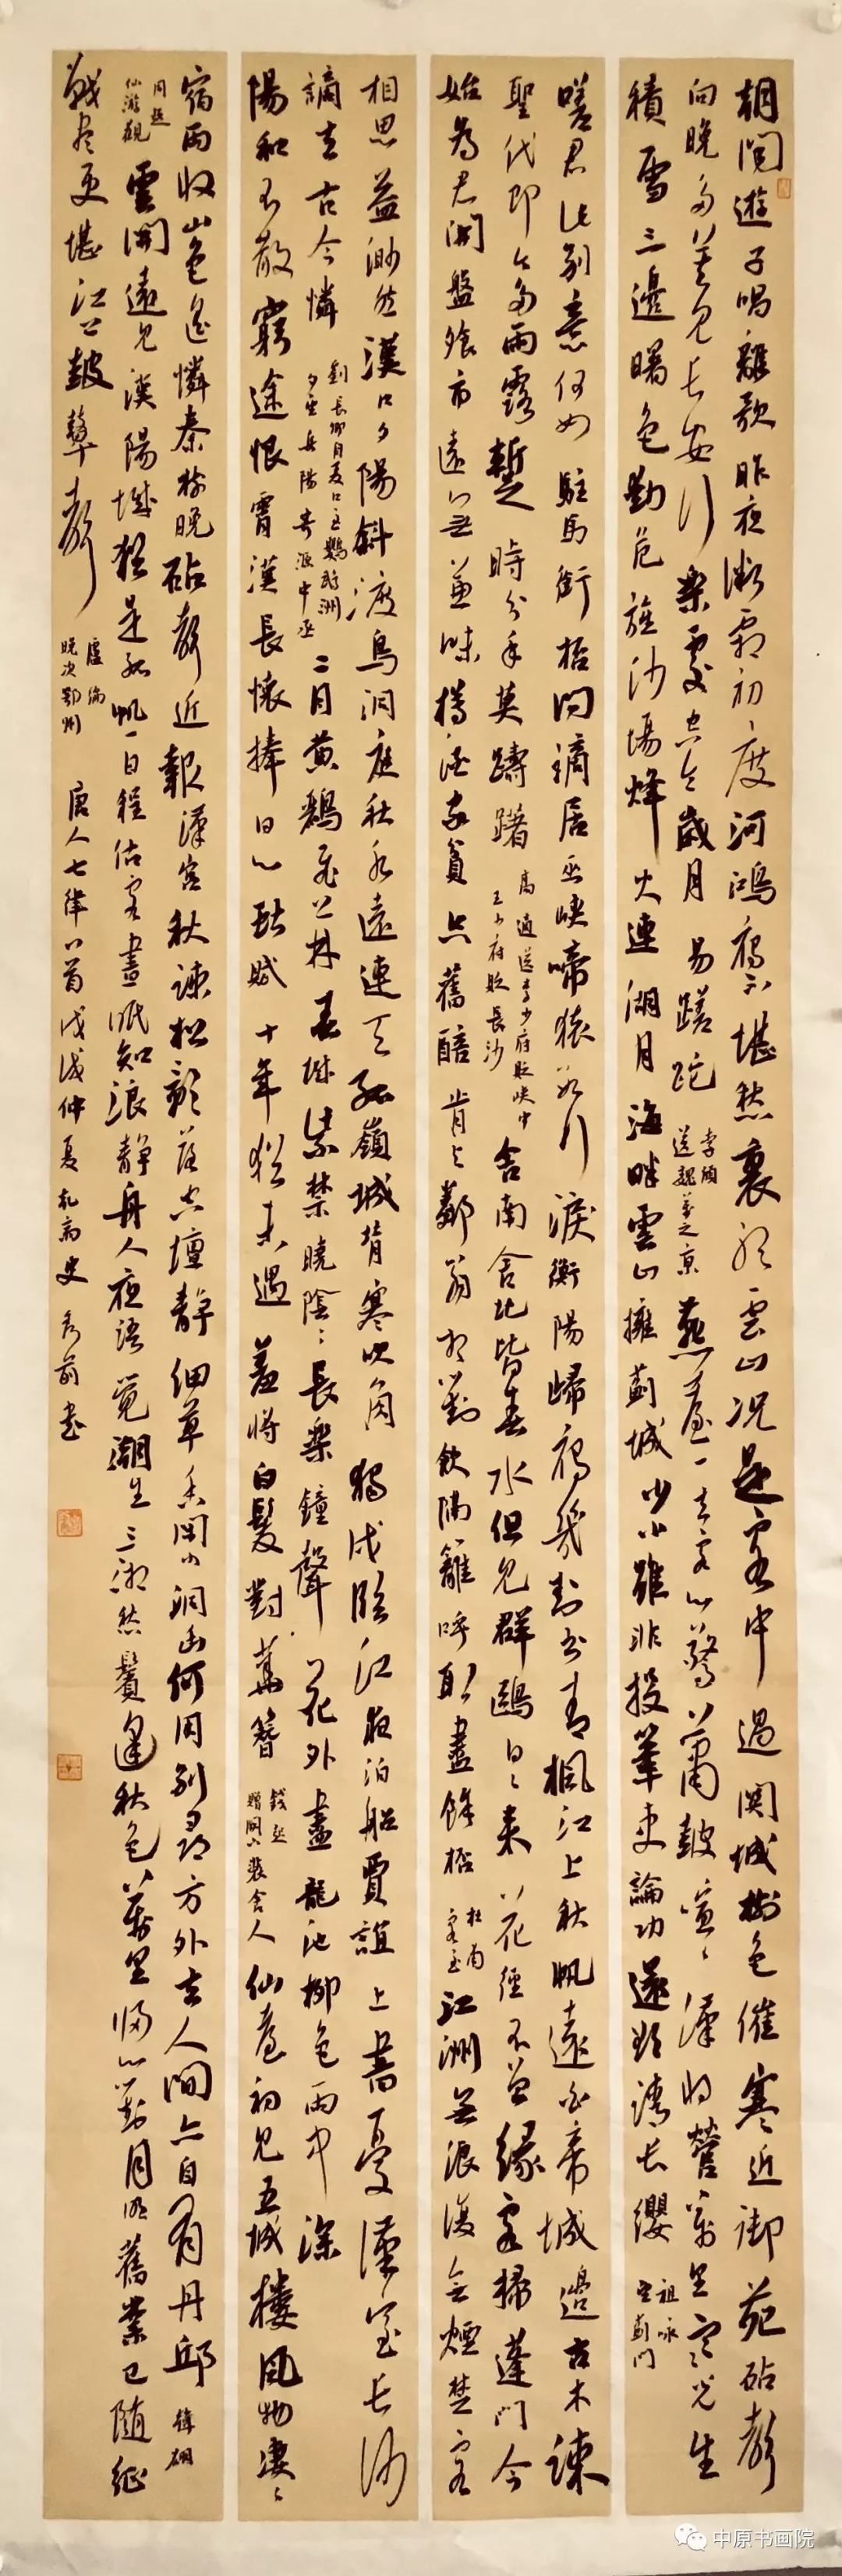 朝聞遊子唱離歌昨夜微霜初度河鴻雁不堪愁裏聽雲山況是客中過關城樹色催寒近御苑砧聲
向晚多莫見長安行樂處空令歲月易蹉跎李頎送魏萬之京燕臺一去客心驚簫鼓喧喧漢將營萬里寒光生
積雪三邊曙色動危旌沙場烽火連湖月海畔雲山擁薊城少小雖非投筆吏論功還欲請長纓祖詠望薊門
嗟君此別意何如駐馬銜杯問謫居巫峽啼猿數行淚衡陽歸雁幾封書青楓江上秋帆遠白帝城邊古木疎
聖代即今多雨露暫時分手莫躊躇高適送李少府貶峽中王少府貶長沙舍南舍北皆春水但見群鷗日日來花徑不曾緣客掃蓬門今
始為君開盤飧市遠無兼味樽酒家貧只舊醅肯與鄰翁相對飲隔籬呼取盡餘杯杜甫客至江洲無浪復無煙楚客
相思益渺然漢口夕陽斜渡鳥洞庭秋水遠連天孤嶺城背寒吹角獨戍臨江夜泊船賈誼上書憂漢室長沙
謫去古今憐劉長卿自夏口至鸚鵡洲夕望岳陽寄源中丞二月黃鸝飛上林春城紫禁曉陰陰長樂鐘聲花外盡龍池柳色雨中深
陽和不散窮途恨霄漢長懷捧日心獻賦十年猶未遇羞將白髮對華簪錢起贈闕下裴舍人仙臺初見五城樓風物淒淒
宿雨收山色遙憐秦樹晚砧聲近報漢宮秋疎松影落空壇靜細草香閑小洞幽何用別尋方外去人間亦自有丹邱韓翃
同題仙遊觀雲開遠見漢陽城猶是孤帆一日程估客晝眠知浪靜舟人夜語覺潮生三湘愁鬢逢秋色萬里歸心對月明舊業已隨征
戰盡更堪江上鼓鼙聲盧綸晚次鄂州唐人七律八首戊戌仲夏史秀前書
中原书画院